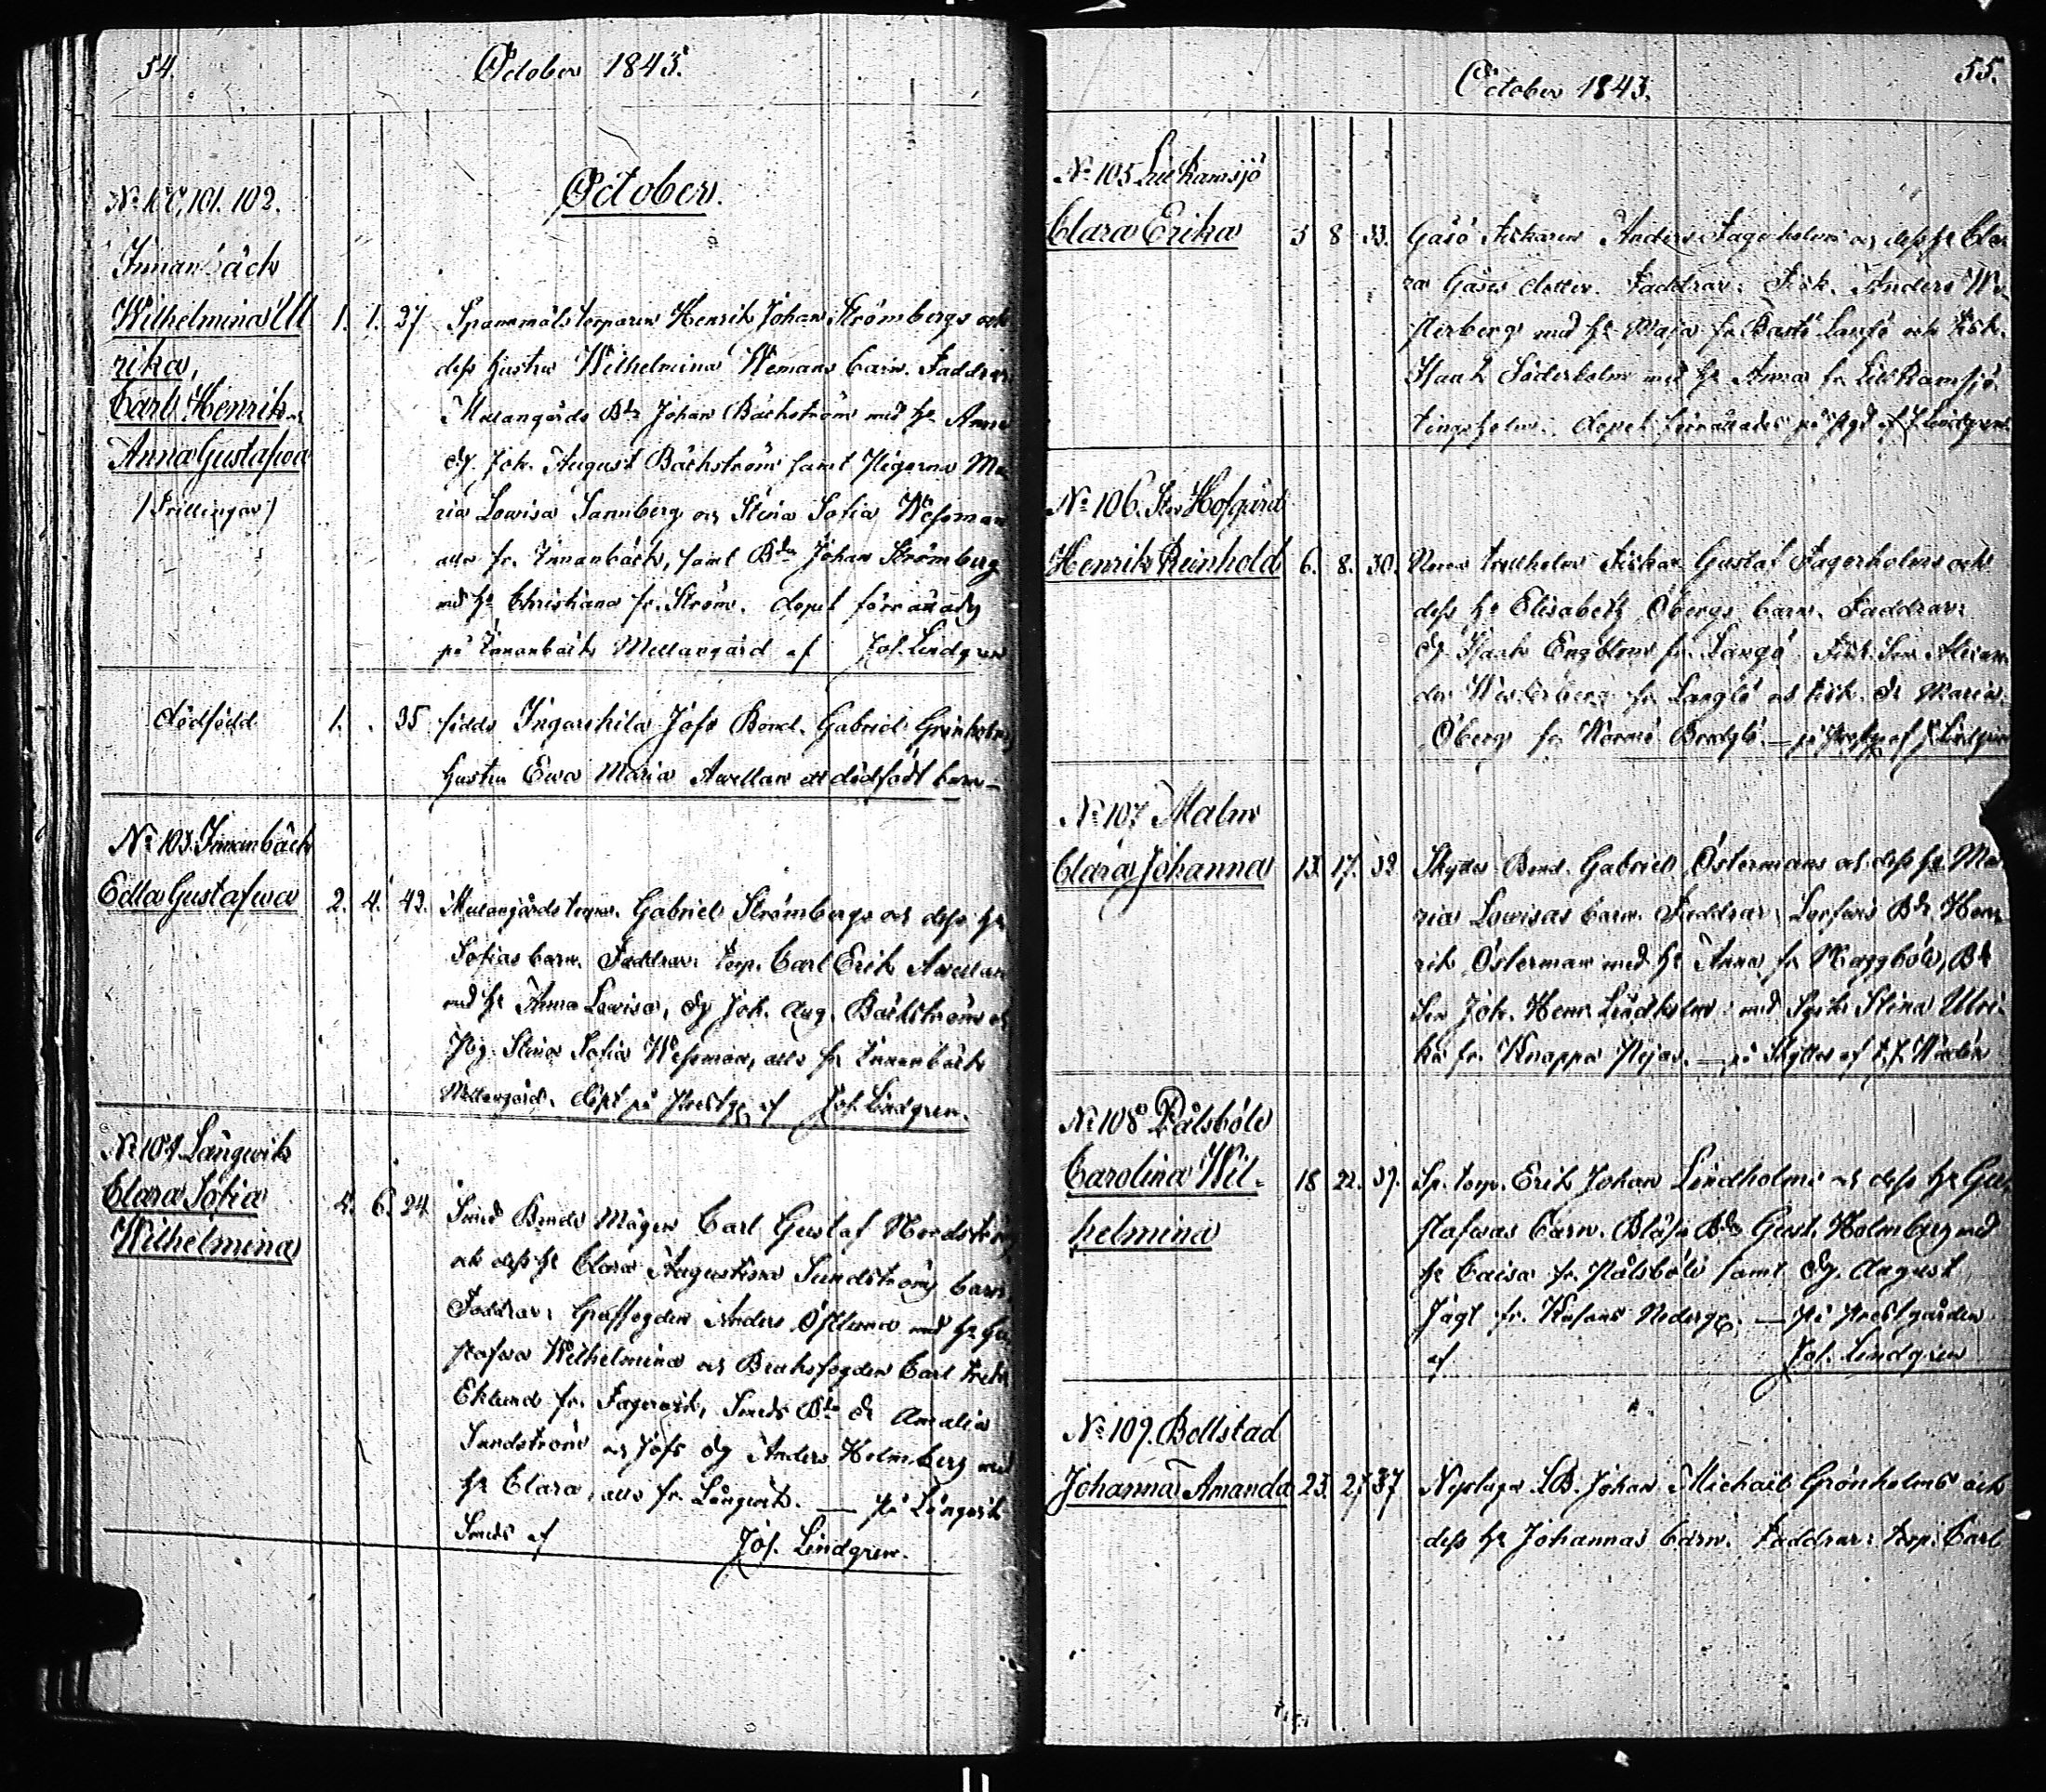 54.
October 1843.
October.
No 100, 101. 102.
Innanbäck
Wilhelmina Ul
rika,
Carl Henrik och
Anna Gustafwa
/Trillingar/
1. 1. 37
Spannmåls torparen Henrik Johan Strömbergs och
dess hustru Wilhelmina Wemans barn. Faddrar
Mellangårds Bdn Johan Bäckström med h. Anna
dg. Joh. August Bäckström samt Pigorna Ma
ria Lowisa Sannberg och Stina Sofia Wessman
alla fr. Innanbäck, samt Bdn Johan Strömberg
med h. Christiana fr. Ström. dopet förrättades
på Innanbäck Mellangård af Joh. Lindgren
dödfödd 1. . 35
födde Ingarskila Jofs Bond. Gabriel Grönholms
hustru Ewa Maria Awellan ett dödfödt barn
No 103. Innanbäck
Edla Gustafwa 2. 4. 42.
Mellangårds torp. Gabriel Strömbergs och dess h.
Sofias barn. Faddrar: torp. Carl Erik Awellan
med h. Anna Lowisa, dg Joh. Aug. Bäckström och
Pig. Stina Sofia Wessman, alla fr Innanbäck
Mellangård. döpt på Prestg. af Joh. Lindgren.
No 104 Långwik
Clara Sofia
Wilhelmina
4. 6. 24
Smeds Bonds Mågen Carl Gustaf Nordström
och dess h. Clara Augustina Sundströms barn.
Faddrar: Anders Östlund med h. Gu
stafwa Wilhelmina och Bruksfogden Carl Fredr
Eklund fr. Fagerwik, Smeds Amalia
Sundström och Jofs dg Anders Holmberg med
h. Clara, alla fr. Långwik. — på Långwik
Smeds af Joh. Lindgren.
55.
October 1843.
No 105 Lill Ramsjö
Clara Erika 3 8 33.
Gåsö Fiskaren Anders Fagerholms och dess h. Cla
ra dotter. Faddrar: Fisk. Anders We
sterberg med h. Maja fr. Långö och Fisk.
Isaak Söderholm med h. Anna fr Lill Ramsjö
holm. dopet förrättades på af J. Lindgren
No 106. Stor Hofgård
Henrik Reinhold 6. 8. 30.
Fiskar Gustaf Fagerholms och
dess h. Elisabeth Öbergs barn. Faddrar:
dg Isaak Engblom fr. Långö, Fisk. Son Alexan
der Westerberg fr Långö och Fisk. dr Maria
Öberg fr. — på Prestg. af J. Lindgren
No 107 Malm
Clara Johanna 13. 17. 32.
Skyttas Bond. Gabriel Östermans och dess h. Ma
ria Lowisas barn. Faddrar: Bdn Hen
rik Österman med h. Anna fr Maggböle, Bd
Son Joh. Henr. Lindholm med Syster Stina Ulri
ka fr. Knappa — på Skyttas af
No 108 Pålsböle
Carolina Wil-
helmina
18 22. 37.
Sp. torp. Erik Johan Lindholms och dess h. Gu
stafwas barn. Bdn Gust. Holmberg med
h. Caisa fr. Pålsböle samt dg. August
Jagt fr. Nederg. — På Prestgården
af Joh. Lindgren
No 109. Bollstad
Johanna Amanda 23. 27. 37
Johan Michaels Grönholms och
dess h. Johannas barn. Faddrar: torp. Carl